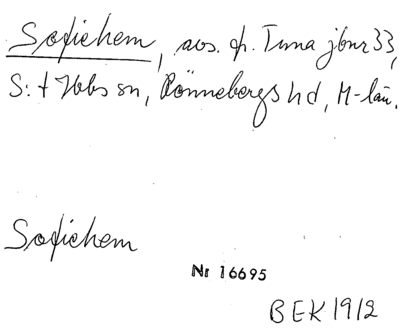 Sofiehem, avs. fr. Tuna jbnr 33,
S:t Ibbs sn, Rönnebergs hd, M-län.
Sofiehem
Nr 16695
BEK 1912